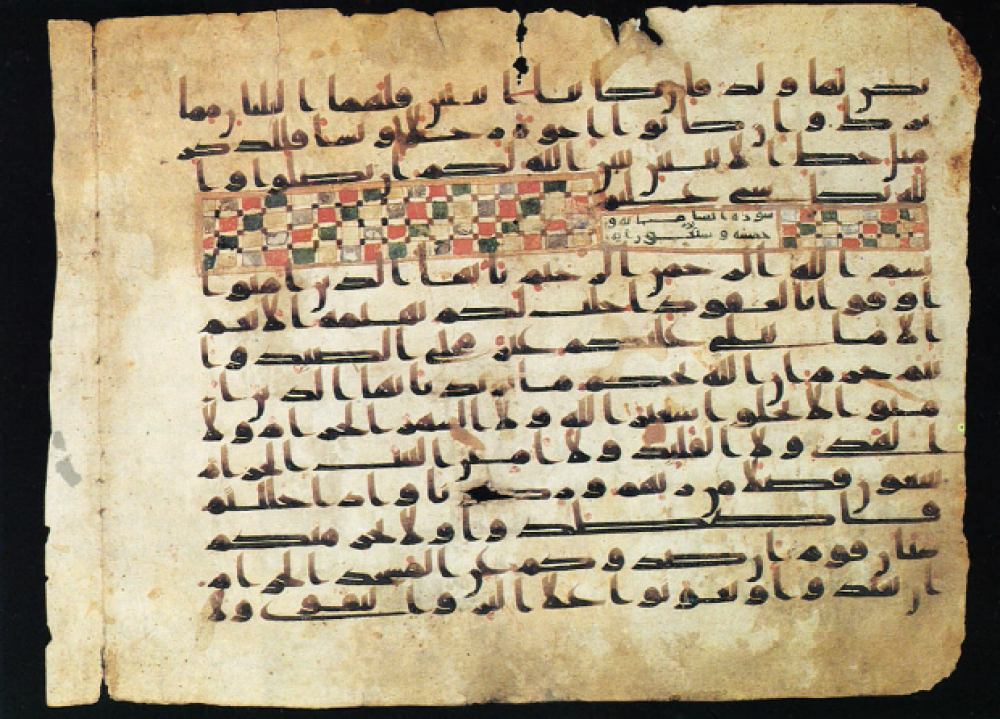 يكن لها ولد فان كانتا اثنتين فلهما الثلثان مما
ترك وان كانوا اخوة رجالا ونسا فللذكر
مثل حظ الانثيين يبين الله لكم ان تضلوا وا
لله بكل شي عليم
سورة النسا مائة و
خمسة و اية
بسم الله الرحمن الرحيم يايها الذين امنوا
اوفوا بالعقود احلت لكم بهيمة الانعم
الا ما يتلى عليكم غير محلي الصيد وا
نتم حرم ان الله يحكم ما يريد يايها الذين ا
منوا لا تحلوا شعير الله ولا الشهر الحرام ولا
الهدي ولا القليد ولا امين البيت الحرام
يبتغون فضلا من ربهم ورضونا واذا حللتم
فاصطدوا ولا يجرمنكم
شنان قوم ان صدوكم عن المسجد الحرام
ان تعتدوا وتعونوا على البر والتقوى ولا